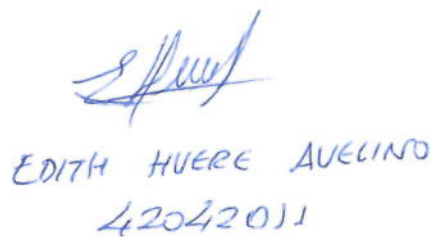 EDITH HUERE AVELINO
42042011